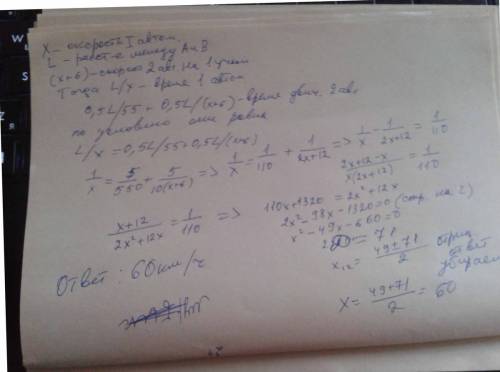 X – скорость I автом.
L – расст-е между A и B
(x+6) – скорость 2 авт. На 1 участ
Тогда L/x – время 1 автом
0,5L/55 + 0,5L/(x+6) – время движ. 2 авт
по условию они равны
L/x = 0,5L/55 + 0,5L/(x+6)
1/x = 5/550 + 5/10(x+6) => 1/x = 1/110 + 1/2x+12 => 1/x - 1/2x+12 = 1/110
2x+12-x/x(2x+12) = 1/110
x+12/2x²+12x = 1/110 => 110x+1320 = 2x²+12x
2x²-98x-1320=0 (сокр. на 2)
x²-49x-660=0
= 71
x₁₂ = 49±71/2 отриц ответ убираем
x = 49+71/2 = 60
Ответ: 60 км/ч